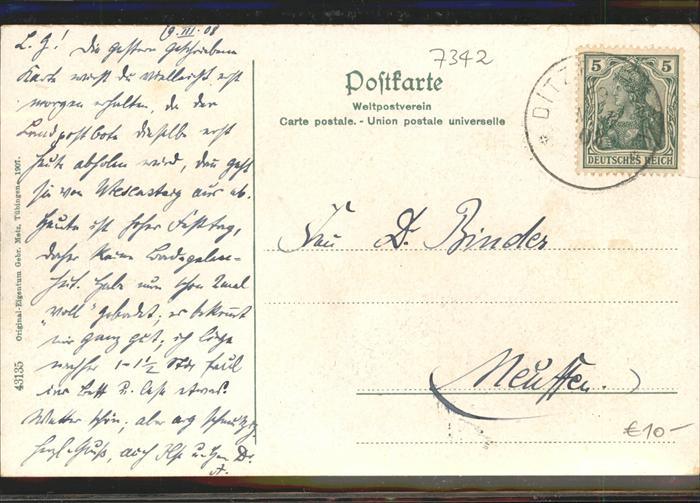 19. III. 08
L. G! Die gestern geschriebene
Karte wirst du vielleicht erst
morgen erhalten, da der
Landpostbote dieselbe erst
heute abholen wird, dann geht
sie von Wiesensteig aus ab.
Heute ist hoher Festtag,
daher keine Badegelegen-
heit. Habe nun schon 2mal
"voll" gebadet; es bekommt
mir ganz gut; ich liege
nachher 1-1½ Std faul
ins Bett u. lese etwas.
Wetter schön, aber arg schmutzig
Herzl. Gruß, auch
Original-Eigentum Gebr. Metz, Tübingen, 1907.
43135
7342
Postkarte
Weltpostverein
Carte postale. - Union postale universelle
DITZ
5 5
DEUTSCHES REICH
Frau D. Binder
Neuffen.
€10-